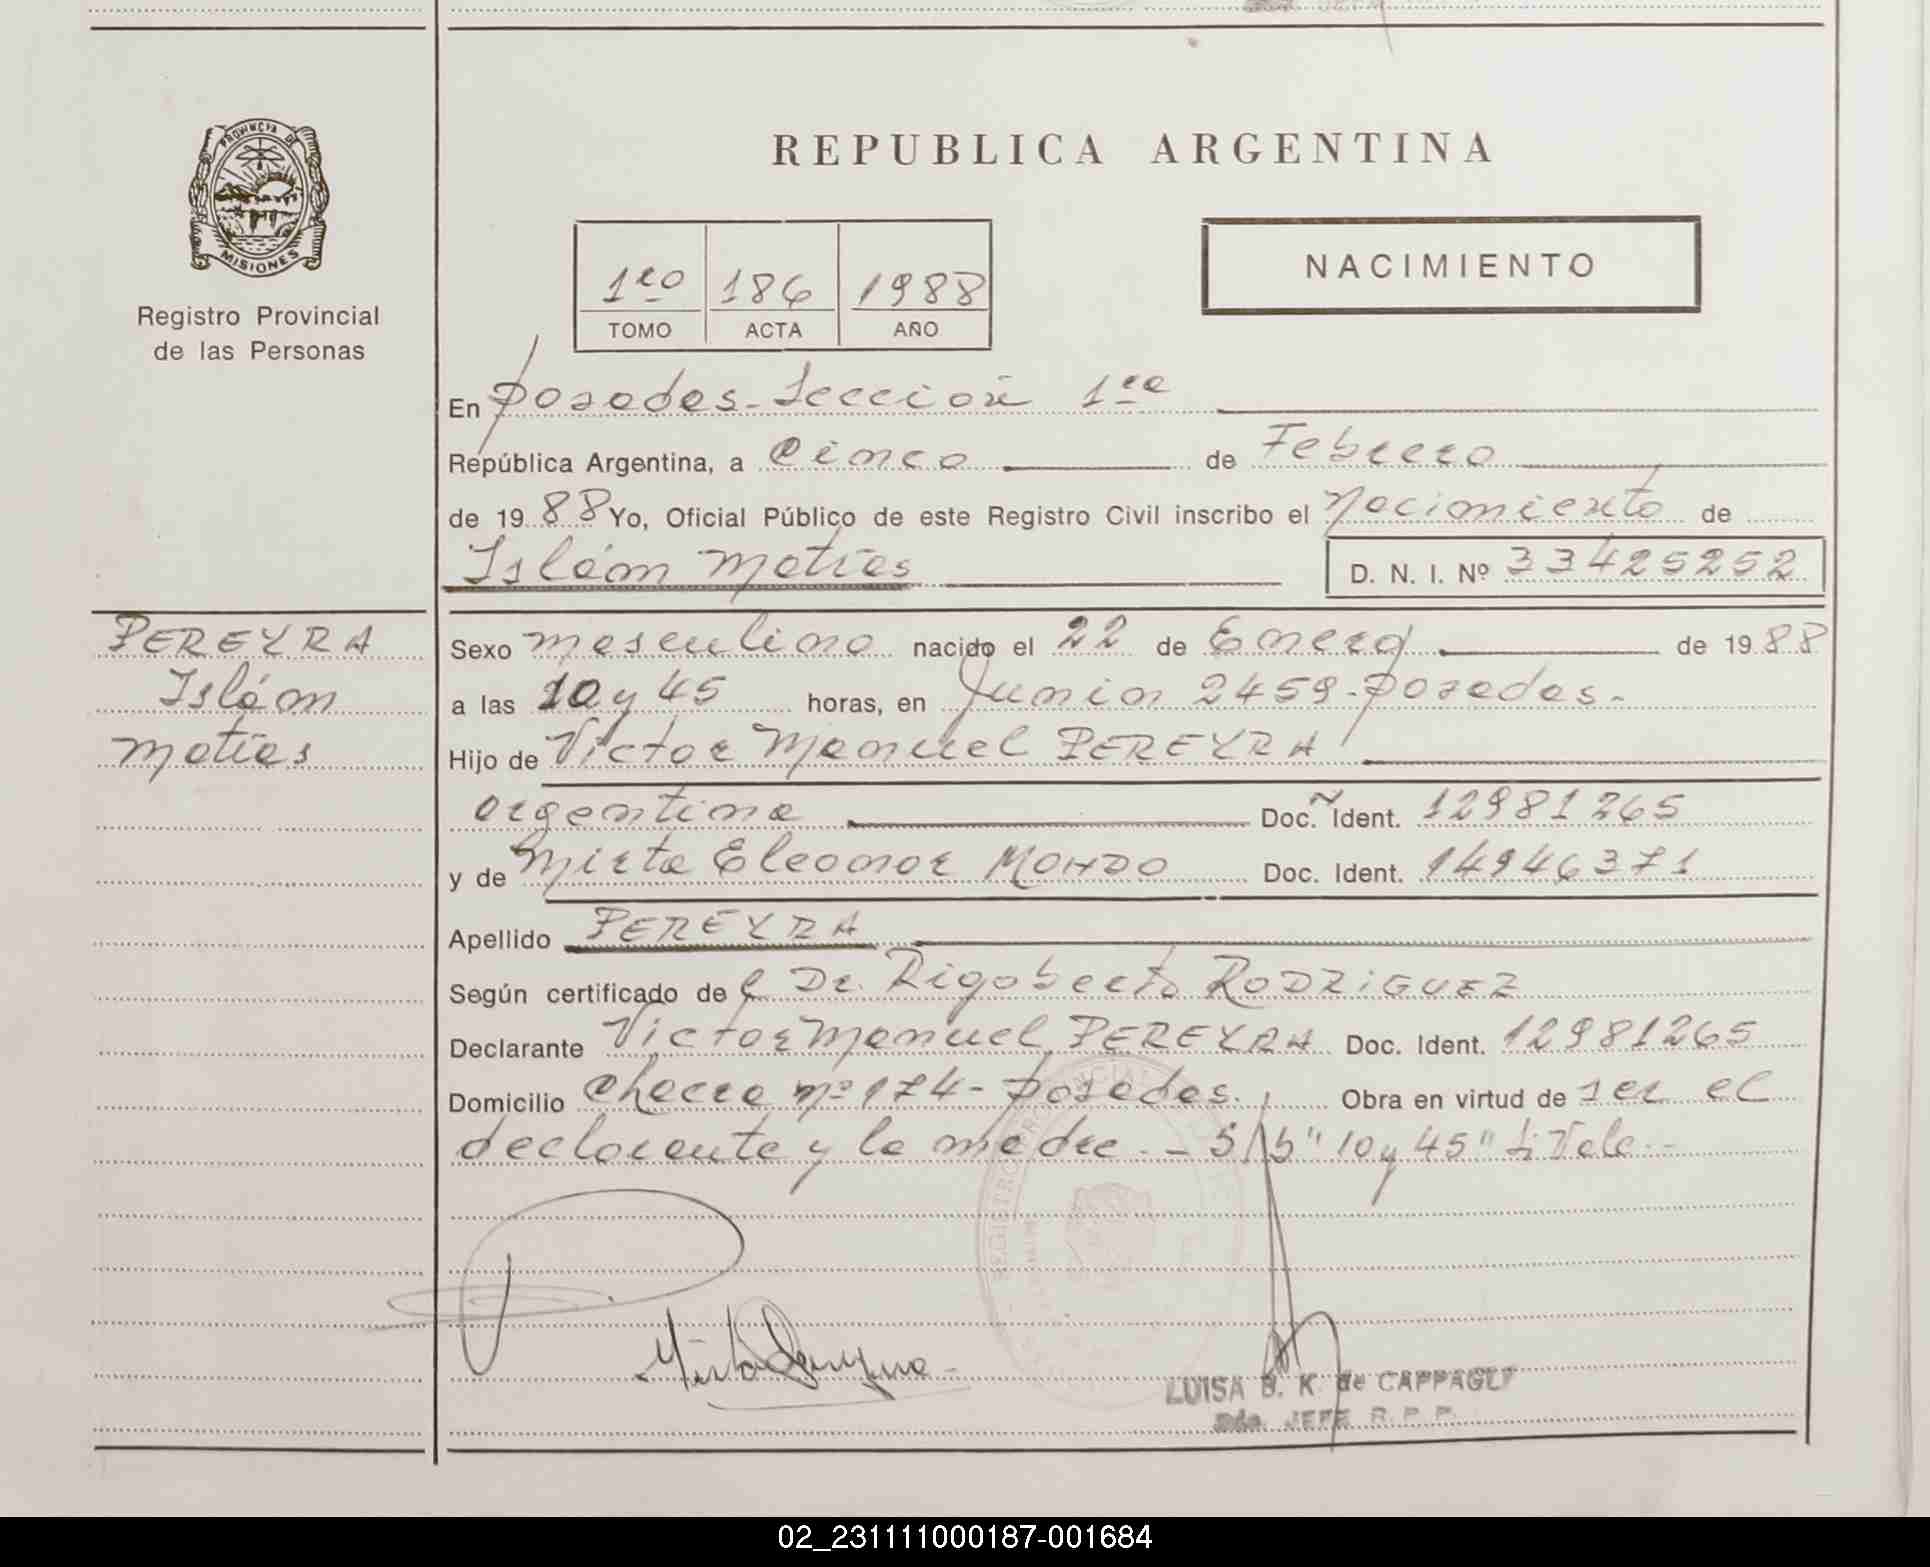 PROVINCIA DE
MISIONES
Registro Provincial
de las Personas
REPUBLICA ARGENTINA
NACIMIENTO
1ro 186 1988
TOMO ACTA AÑO
En Posadas-Sección 1ra
República Argentina, a Cinco de Febrero
de 1988 Yo, Oficial Público de este Registro Civil inscribo el Nacimiento de
Isláam Matías D. N. I. Nº 33425252
PEREYRA
Isláam
Matías
Sexo masculino nacido el 22 de Enero de 1988
a las 10 y 45 horas, en Junin 2459-Posadas.
Hijo de Victor Manuel PEREYRA
argentina Doc. Ident. 12981265
y de Mirta Eleonor MOHDO Doc. Ident. 14946371
Apellido PEREYRA
Según certificado del Dr. Rigoberto RODRIGUEZ
Declarante Victor Manuel PEREYRA Doc. Ident. 12981265
Domicilio Chacra nº 174-Posadas. Obra en virtud de ser el
declarante y la madre.- S/b "10 y 45" si Vale.-
LUISA B. K. de CAPPAGLI
2da. JEFE R. P. P.
02_231111000187-001684